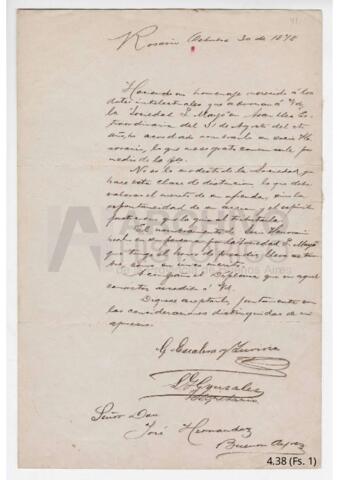 41
Rosario Octubre 30 de 1878
Haciendo un homenage merecido á los
dotes intelectuales que adornan á Vd
la Sociedad "L. Mayo" en Asamblea Es-
traordinaria del 31 de Agosto del cte
año, ha acordado nombrarlo su socio Ho-
norario, lo que me es grato comunicarle por
medio de la pte.
No es la modestia de la Sociedad que
hace esta clase de distincion la que debe
valorar el mérito de su ofrenda, sinó la
espontaneidad de su accion y el espíritu
justiciero que la que el tributarla.
El nombramiento de Socio Honora-
rio en su persona por la Sociedad L. Mayo
que tengo el honor de presidir lleva
Acompaño el Diploma que en aquel
caracter acredita á Vd.
Dignese aceptarlo juntamente con
las consideraciones distinguidas de mi
aprecio.
G. Escalera y Zuviria
L. Gonzalez
Secretario
Señor Don
José Hernandez
Buenos Ayres
Buenos Aires
4.38 (Fs. 1)